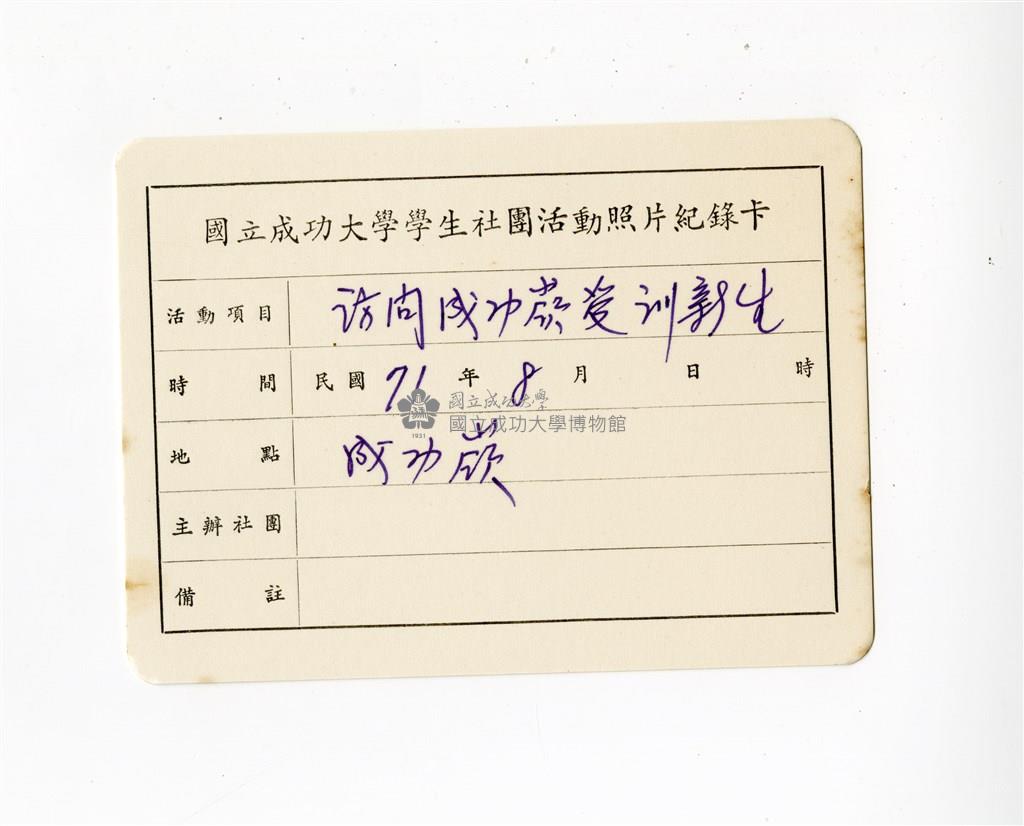 國立成功大學學生社團活動照片紀錄卡
活動項目 訪問成功嶺受訓新生
時間 民國71年8月 日 時
國立成功大學
國立成功大學博物館
1931
地點 成功嶺
主辦社團
備註